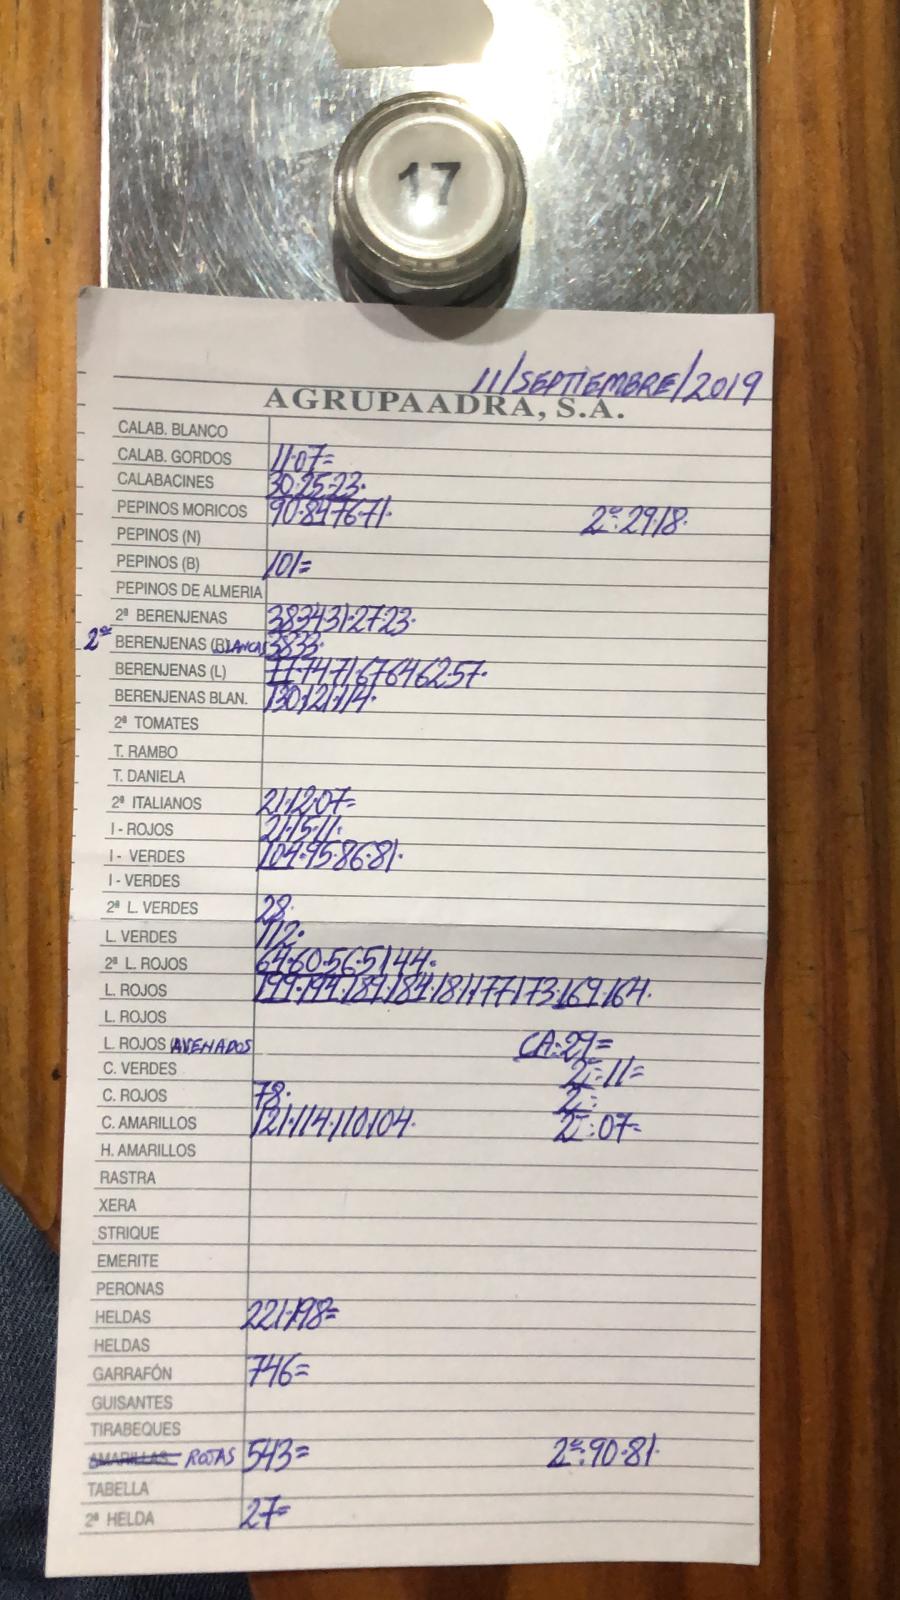 17
11/SEPTIEMBRE/2019
AGRUPAADRA, S.A.
CALAB. BLANCO
CALAB. GORDOS 11·07=
CALABACINES 30·25·23·
PEPINOS MORICOS 90·84·76·71· 2ªˢ:29·18·
PEPINOS (N)
PEPINOS (B) 101=
PEPINOS DE ALMERIA
2ª BERENJENAS 38·34·31·27·23·
2ªˢ BERENJENAS (BLANCAS 38·33·
BERENJENAS (L) 77·74·71·67·64·62·57·
BERENJENAS BLAN. 130·121·114·
2ª TOMATES
T. RAMBO
T. DANIELA
2ª ITALIANOS 21·12·07=
I - ROJOS 21·15·11·
I - VERDES 104·95·86·81·
I - VERDES
2ª L. VERDES 28·
L. VERDES 112·
2ª L. ROJOS 64·60·56·51·44·
L. ROJOS 199·194·189·184·181·177·173·169·164·
L. ROJOS
L. ROJOS (AVENADOS CA:29=
C. VERDES 2ª:11=
C. ROJOS 78· 2ª:
C. AMARILLOS 121·114·110·104· 2ª:07=
H. AMARILLOS
RASTRA
XERA
STRIQUE
EMERITE
PERONAS
HELDAS 221·198=
HELDAS
GARRAFÓN 746=
GUISANTES
TIRABEQUES
AMARILLAS ROJAS 543= 2ªˢ:90·81·
TABELLA
2ª HELDA 27=